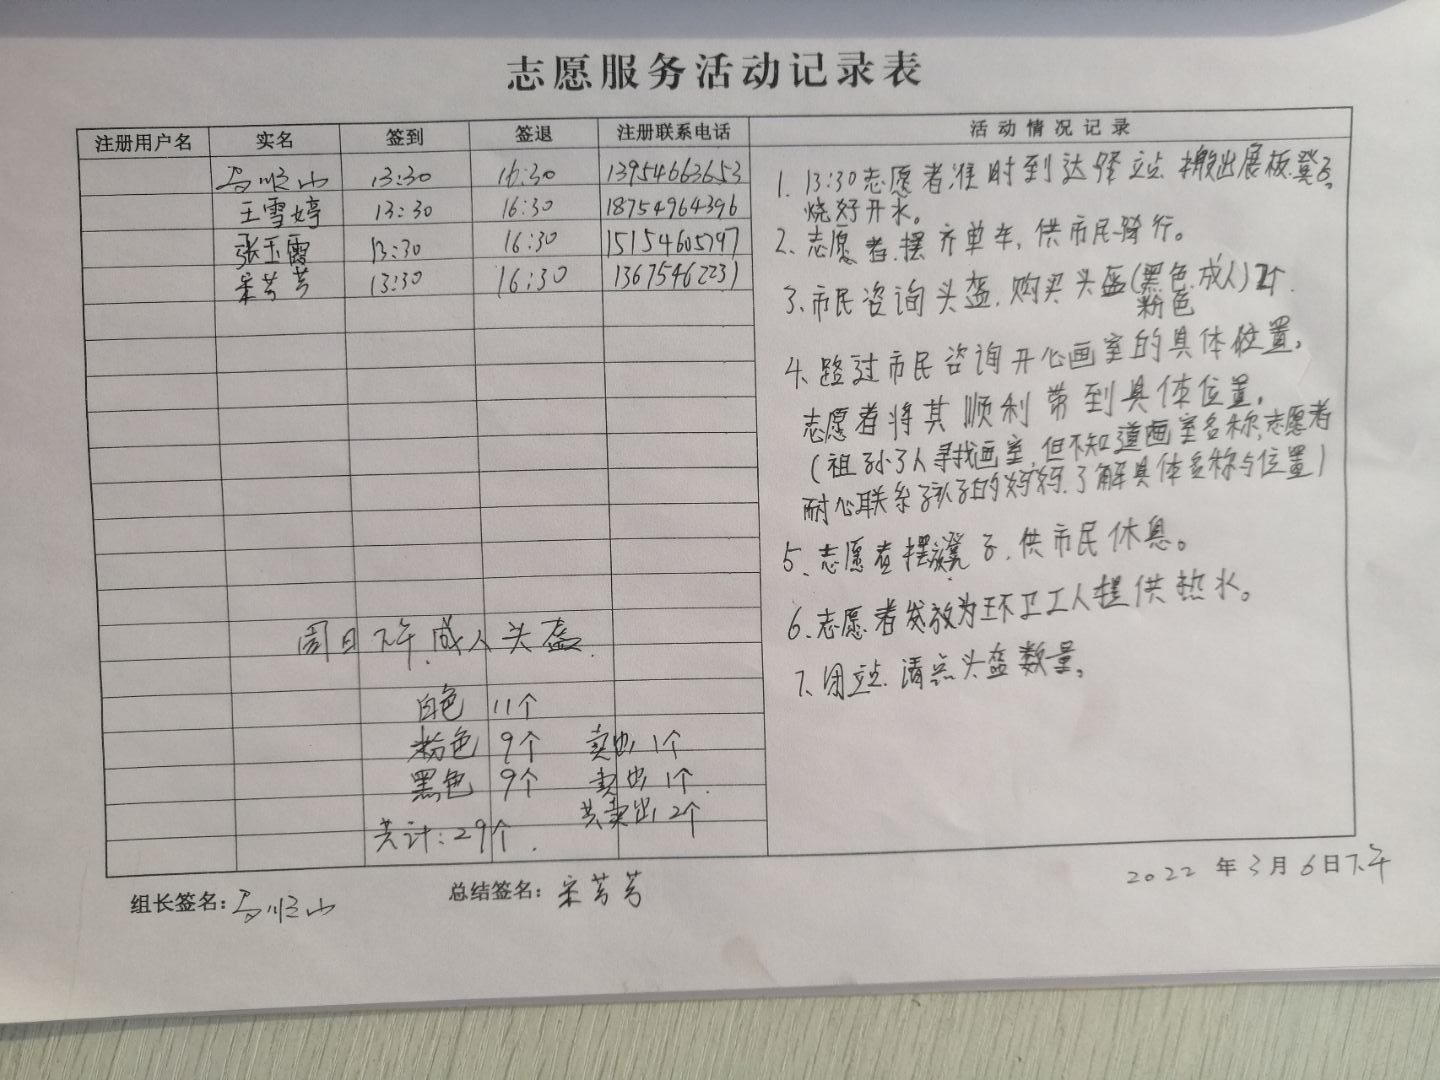 志愿服务活动记录表
注册用户名 实名 签到 签退 注册联系电话 活动情况记录
马顺山 13:30 16:30 13954663653
王雪婷 13:30 16:30 18754964396
张玉霞 13:30 16:30 15154605797
宋芳芳 13:30 16:30 13675462231
1. 13:30志愿者准时到达驿站.搬出展板.凳子,
烧好开水。
2、志愿者.摆齐单车,供市民骑行。
3、市民咨询头盔.购买头盔(黑色.成人)2个.
粉色
4、路过市民咨询开心画室的具体位置,
志愿者将其顺利带到具体位置。
(祖孙3人寻找画室,但不知道画室名称,志愿者
耐心联系孩子的妈妈.了解具体名称与位置)
5、志愿者摆放凳子.供市民休息。
6、志愿者发放为环卫工人提供热水。
7、闭站.清点头盔数量。
周日下午.成人头盔.
白色 11个
粉色 9个 卖出1个
黑色 9个 卖出1个.
共卖出2个
共计:29个.
组长签名:马顺山 总结签名:宋芳芳 2022年3月6日下午